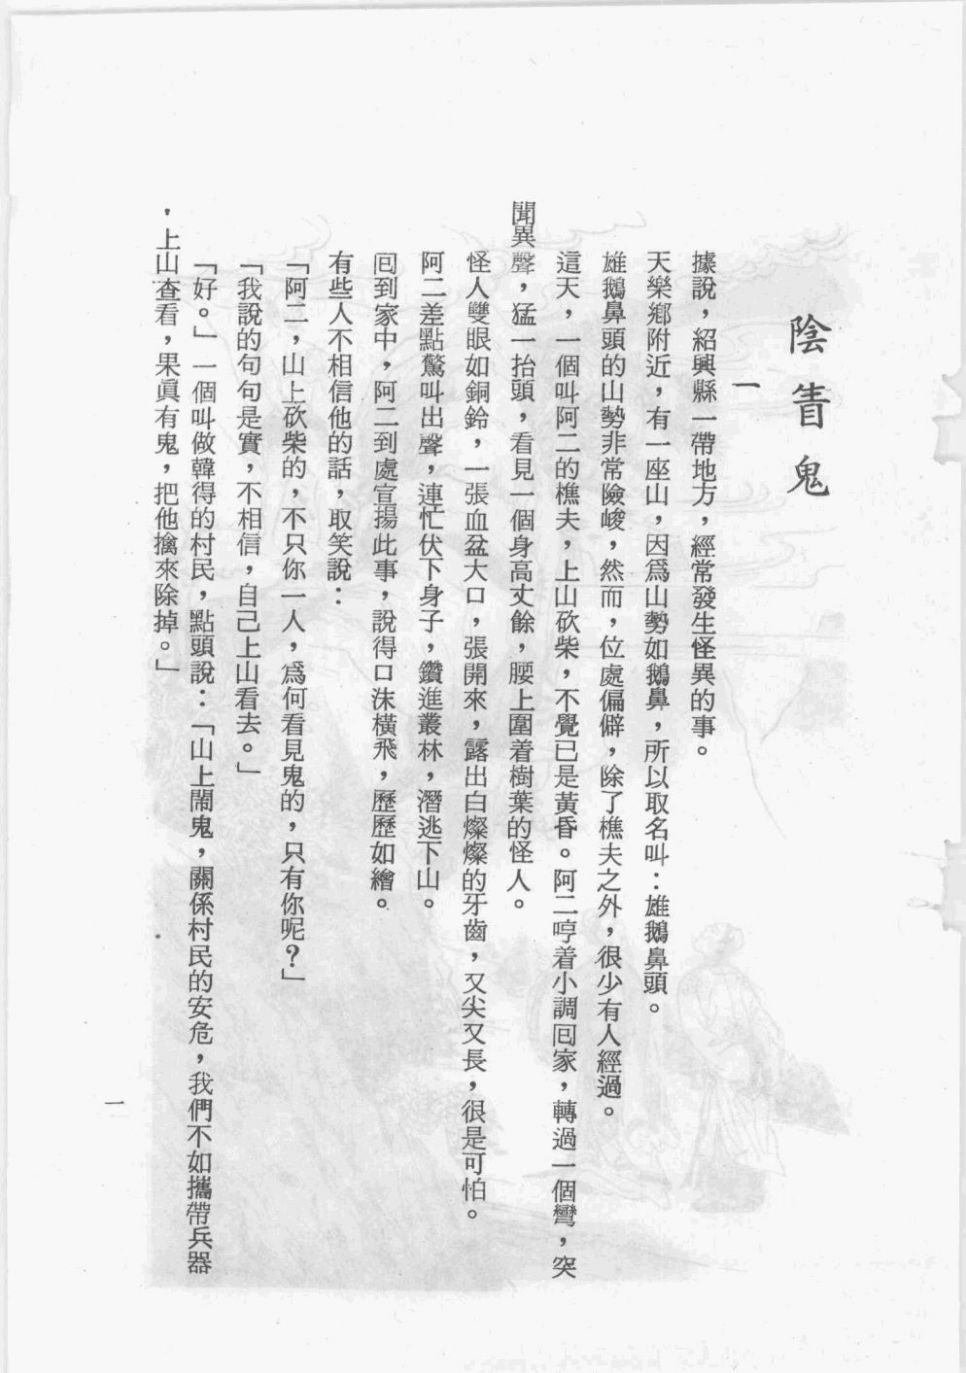 陰眚鬼
一
據說，紹興縣一帶地方，經常發生怪異的事。
天樂鄉附近，有一座山，因爲山勢如鵝鼻，所以取名叫：雄鵝鼻頭。
雄鵝鼻頭的山勢非常險峻，然而，位處偏僻，除了樵夫之外，很少有人經過。
這天，一個叫阿二的樵夫，上山砍柴，不覺已是黃昏。阿二哼着小調囘家，轉過一個彎，突
聞異聲，猛一抬頭，看見一個身高丈餘，腰上圍着樹葉的怪人。
怪人雙眼如銅鈴，一張血盆大口，張開來，露出白燦燦的牙齒，又尖又長，很是可怕。
阿二差點驚叫出聲，連忙伏下身子，鑽進叢林，潛逃下山。
囘到家中，阿二到處宣揚此事，說得口沫橫飛，歷歷如繪。
有些人不相信他的話，取笑說：
「阿二，山上砍柴的，不只你一人，爲何看見鬼的，只有你呢？」
「我說的句句是實，不相信，自己上山看去。」
「好。」一個叫做韓得的村民，點頭說：「山上鬧鬼，關係村民的安危，我們不如攜帶兵器
，上山查看，果眞有鬼，把他擒來除掉。」
一